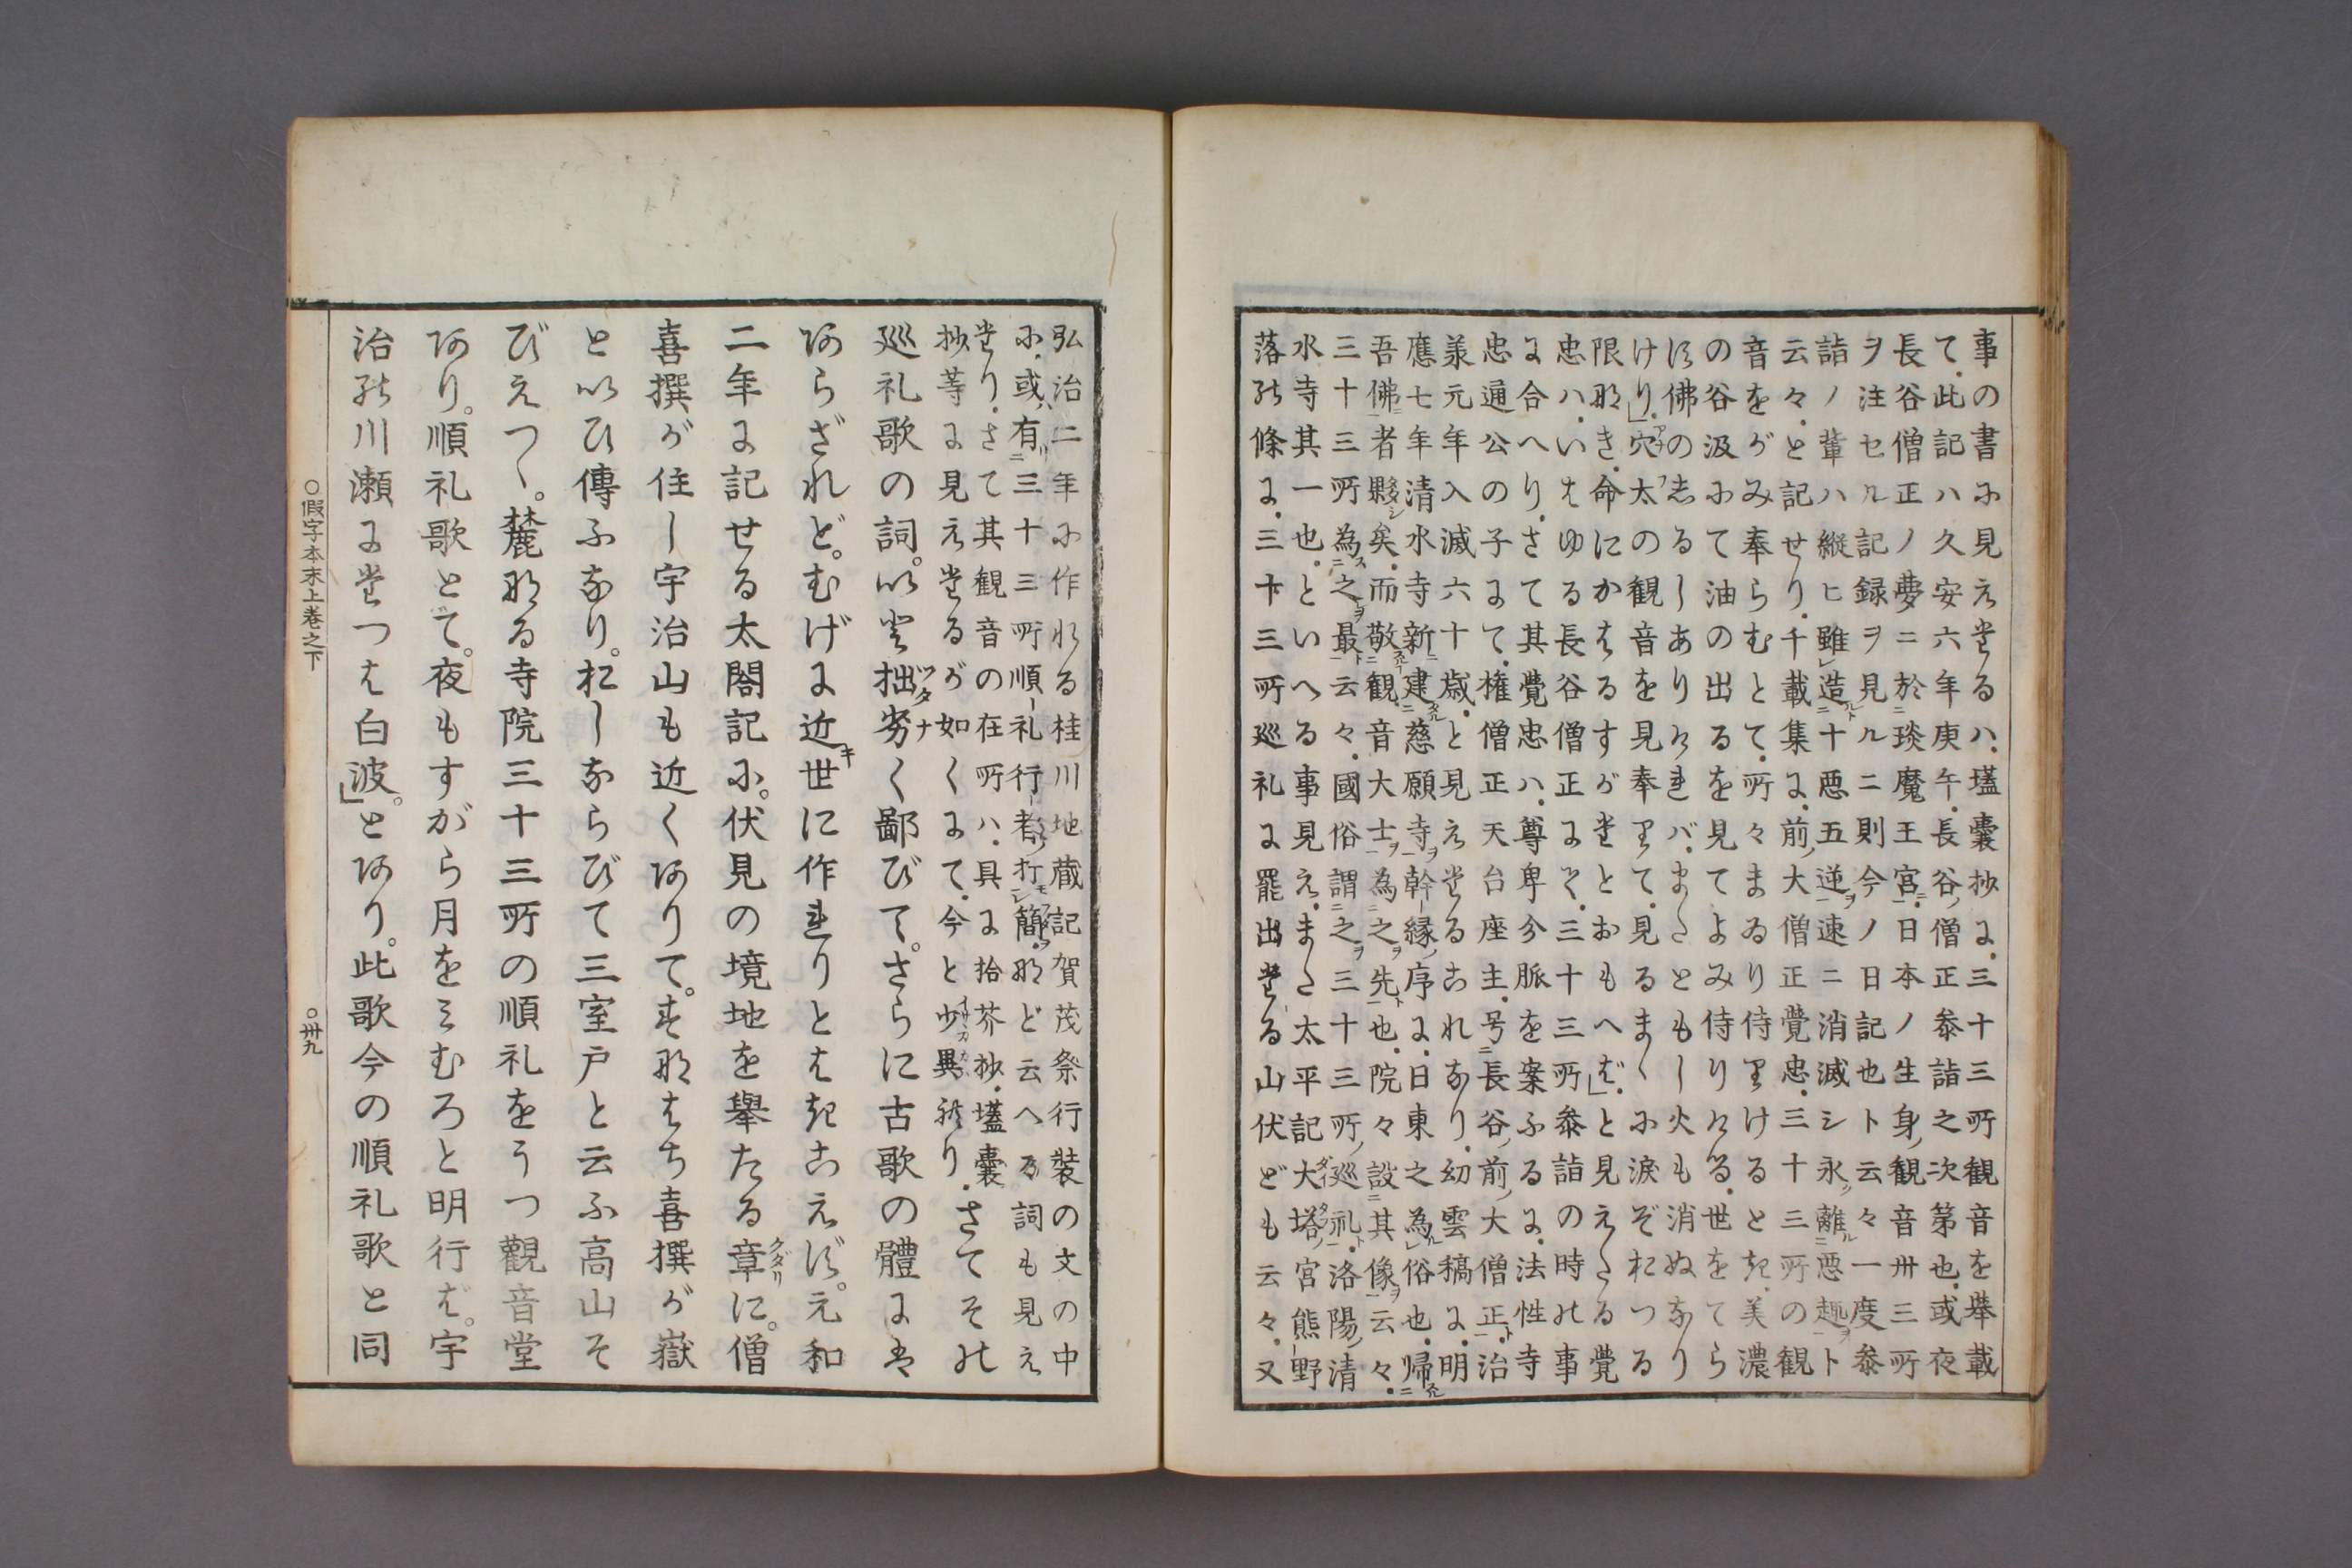 事の書に見えたるハ、壒囊抄に、三十三所観音を挙載
て、此記ハ久安六年庚午、長谷ノ僧正参詣之次第也、或夜
長谷僧正ノ夢ニ於琰魔王宮ニ、日本ノ生身ノ観音卅三所
ヲ注セル記録ヲ見ルニ則今ノ日記也ト云々一度参
詣ノ輩ハ縦ヒ雖造十悪五逆ヲ速ニ消滅シ永ク離ル悪趣ヲト
云々、と記せり、千載集に、前ノ大僧正覺忠、三十三所の観
音をがみ奉らむとて、所々まゐり侍りけるとき、美濃
の谷汲にて油の出るを見てよみ侍りける、世をてら
す佛のしるしありければ、またともし火も消ぬなり
けり」、穴太の観音を見奉りて、見るまゝに涙ぞおつる
限なき、命にかはるすがたとおもへば」、と見えたる覺
忠ハ、いはゆる長谷僧正にて、三十三所参詣の時の事
に合へり、さて其覺忠ハ、尊卑分脈を案ふるに、法性寺
忠通公の子にて、権僧正天台座主、号長谷ノ前ノ大僧正ト、治
承元年入滅六十歳、と見えたるこれなり、幻雲稿に、明
應七年清水寺新建慈願寺ヲ幹縁ノ序に、日東之為俗也、帰
吾佛者夥シ矣、而敬観音大士ヲ為之ヲ先ト也、院々設其像ヲ云々、
三十三所為之最ト云々、國俗謂之ヲ三十三所ノ巡礼ト、洛陽ノ清
水寺其一也、といへる事見え、また太平記大塔ノ宮熊野
落の條に、三十三所巡礼に罷出たる山伏ども云々、又
弘治二年に作れる桂川地蔵記賀茂祭行装の文の中
に、或ハ有三十三所順礼行者ノ打簡、など云へる詞も見え
たり、さて其観音の在所ハ、具に拾芥抄、壒囊
抄等に見えたるが如くにて、今と少異れり、さてその
巡礼歌の詞。いと拙劣く鄙びて。さらに古歌の體には
あらざれど。むげに近世に作れりとはきこえず。元和
二年に記せる太閤記に。伏見の境地を擧たる章に。僧
喜撰が住し宇治山も近くありて。すなはち喜撰が嶽
といひ傳ふなり。おしならびて三室戸と云ふ高山そ
びえつゝ。麓なる寺院三十三所の順礼をうつ觀音堂
あり。順礼歌とて。夜もすがら月をみむろと明行ば。宇
治の川瀬にたつは白波。」とあり。此歌今の順礼歌と同
〇假字本末上巻之下
〇卅九